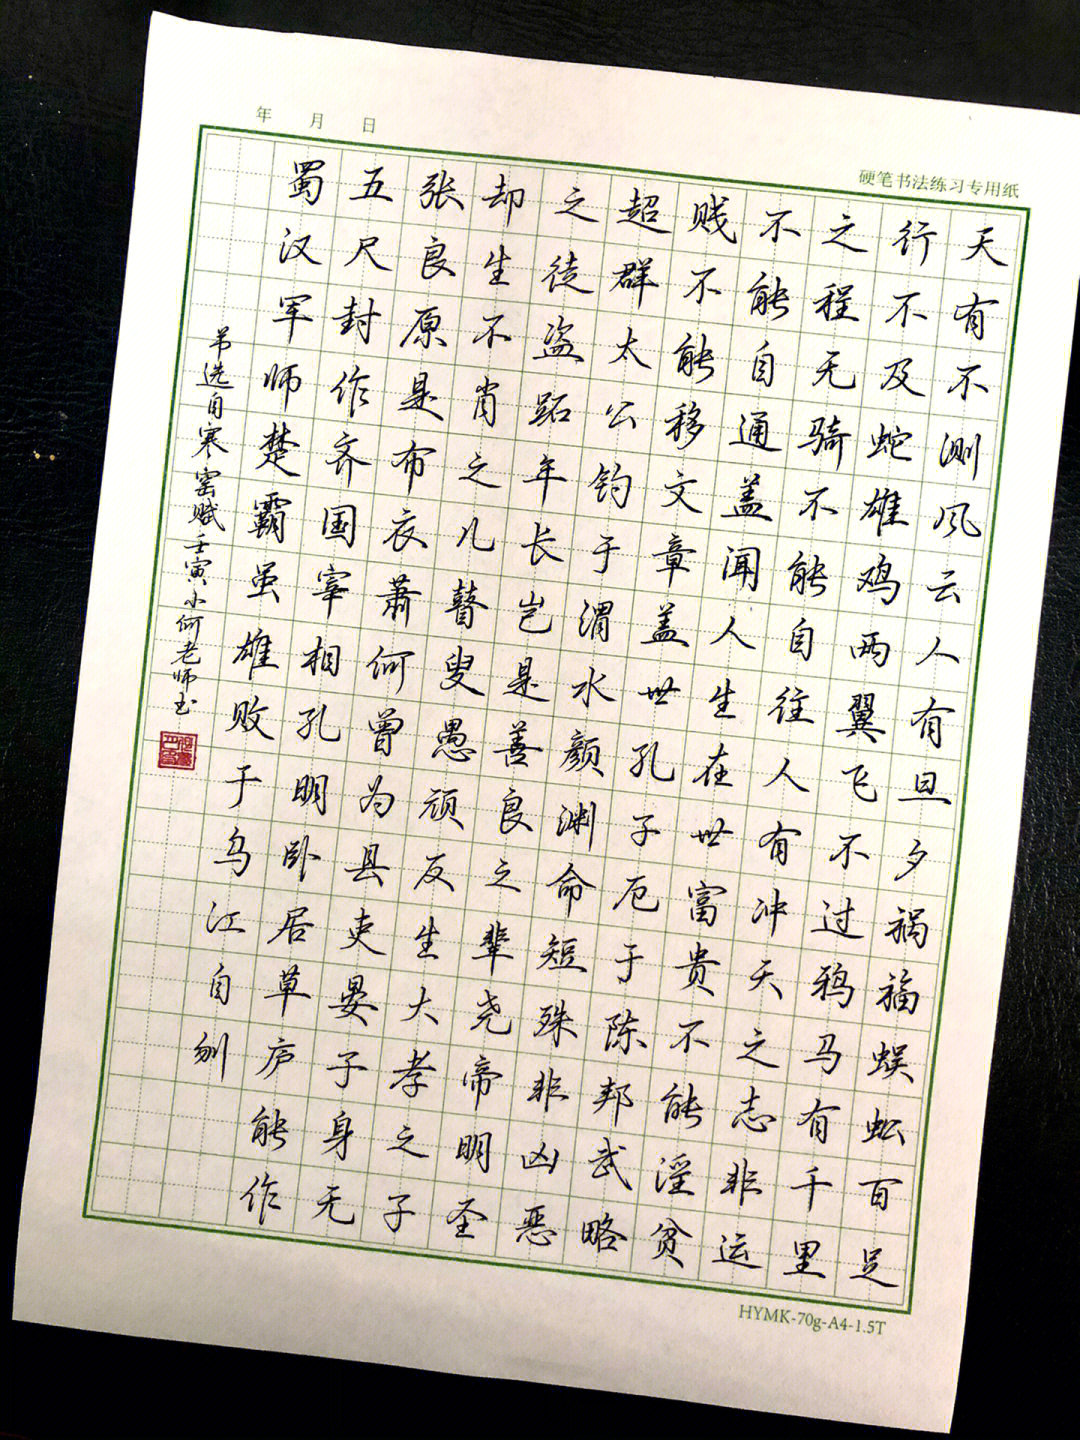 年 月 日
硬笔书法练习专用纸
天有不测风云人有旦夕祸福蜈蚣百足
行不及蛇雄鸡两翼飞不过鸦马有千里
之程无骑不能自往人有冲天之志非运
不能自通盖闻人生在世富贵不能淫贫
贱不能移文章盖世孔子厄于陈邦武略
超群太公钓于渭水颜渊命短殊非凶恶
之徒盗跖年长岂是善良之辈尧帝明圣
却生不肖之儿瞽叟愚顽反生大孝之子
张良原是布衣萧何曾为县吏晏子身无
五尺封作齐国宰相孔明卧居草庐能作
蜀汉军师楚霸虽雄败于乌江自刎
节选自寒窑赋壬寅小何老师书
HYMK-70g-A4-1.5T